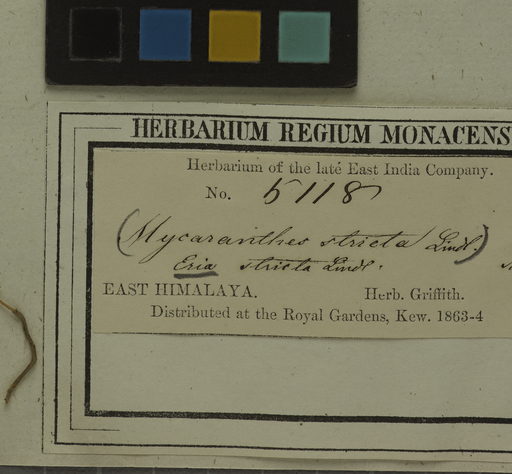 HERBARIUM REGIUM MONACENS
Herbarium of the late East India Company.
No. 5118
(Mycaranthes stricta Lindl.)
Eria stricta Lindl.
EAST HIMALAYA. Herb. Griffith.
Distributed at the Royal Gardens, Kew. 1863-4